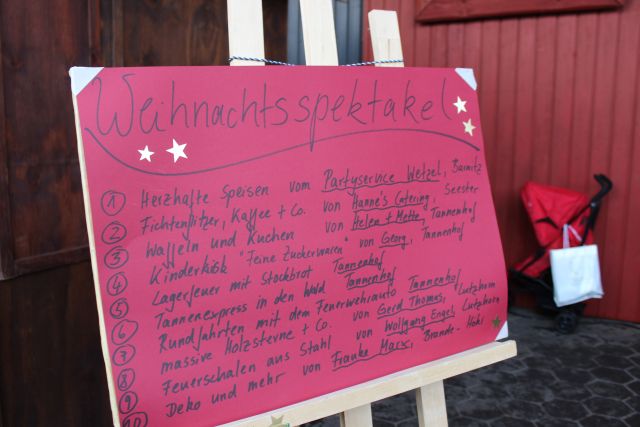 Weihnachtsspektakel
1 Herzhafte Speisen vom Partyservice Wetzel, Barnitz
2 Fichtenflitzer, Kaffee + Co. von Hanne's Catering, Seester
3 Waffeln und Kuchen von Helen + Mette, Tannenhof
4 Kinderkiosk "feine Zuckerwaren" von Georg, Tannenhof
5 Lagerfeuer mit Stockbrot Tannenhof
6 Tannenexpress in den Wald Tannenhof
7 Rundfahrten mit dem Feuerwehrauto Tannenhof
8 massive Holzsterne + Co. von Gerd Thomas, Lutzhorn
9 Feuerschalen aus Stahl von Wolfgang Engel, Lutzhorn
10 Deko und mehr von Frauke Marx, Brande-